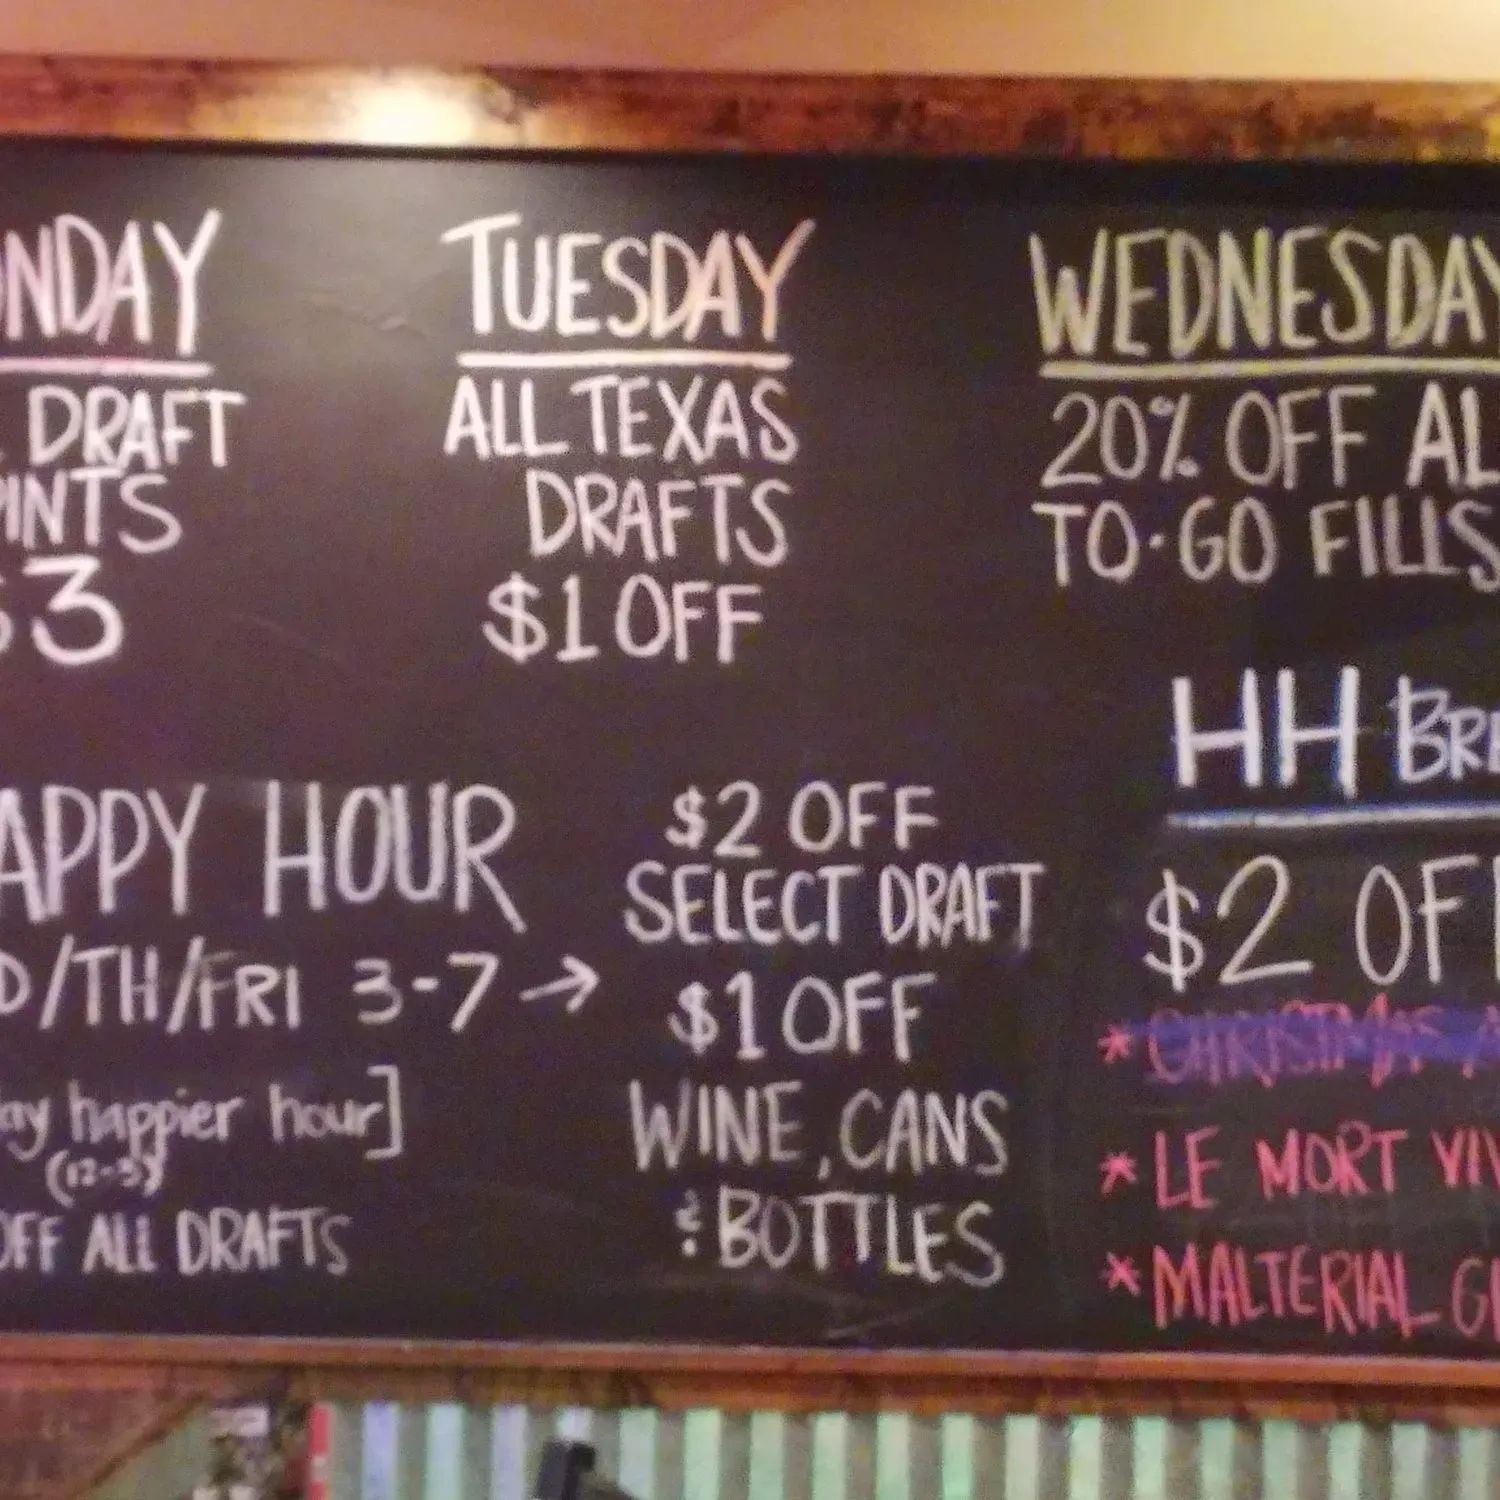 NDAY
DRAFT
PINTS
$3
TUESDAY
ALL TEXAS
DRAFTS
$1 OFF
WEDNESDAY
20% OFF AL
TO·GO FILLS
APPY HOUR
D/TH/FRI 3-7 →
ay happier hour]
(12-3)
OFF ALL DRAFTS
$2 OFF
SELECT DRAFT
$1 OFF
WINE, CANS
& BOTTLES
HH BRE
$2 OFF
* CHRISTMAS A
* LE MORT VIV
* MALTERIAL G